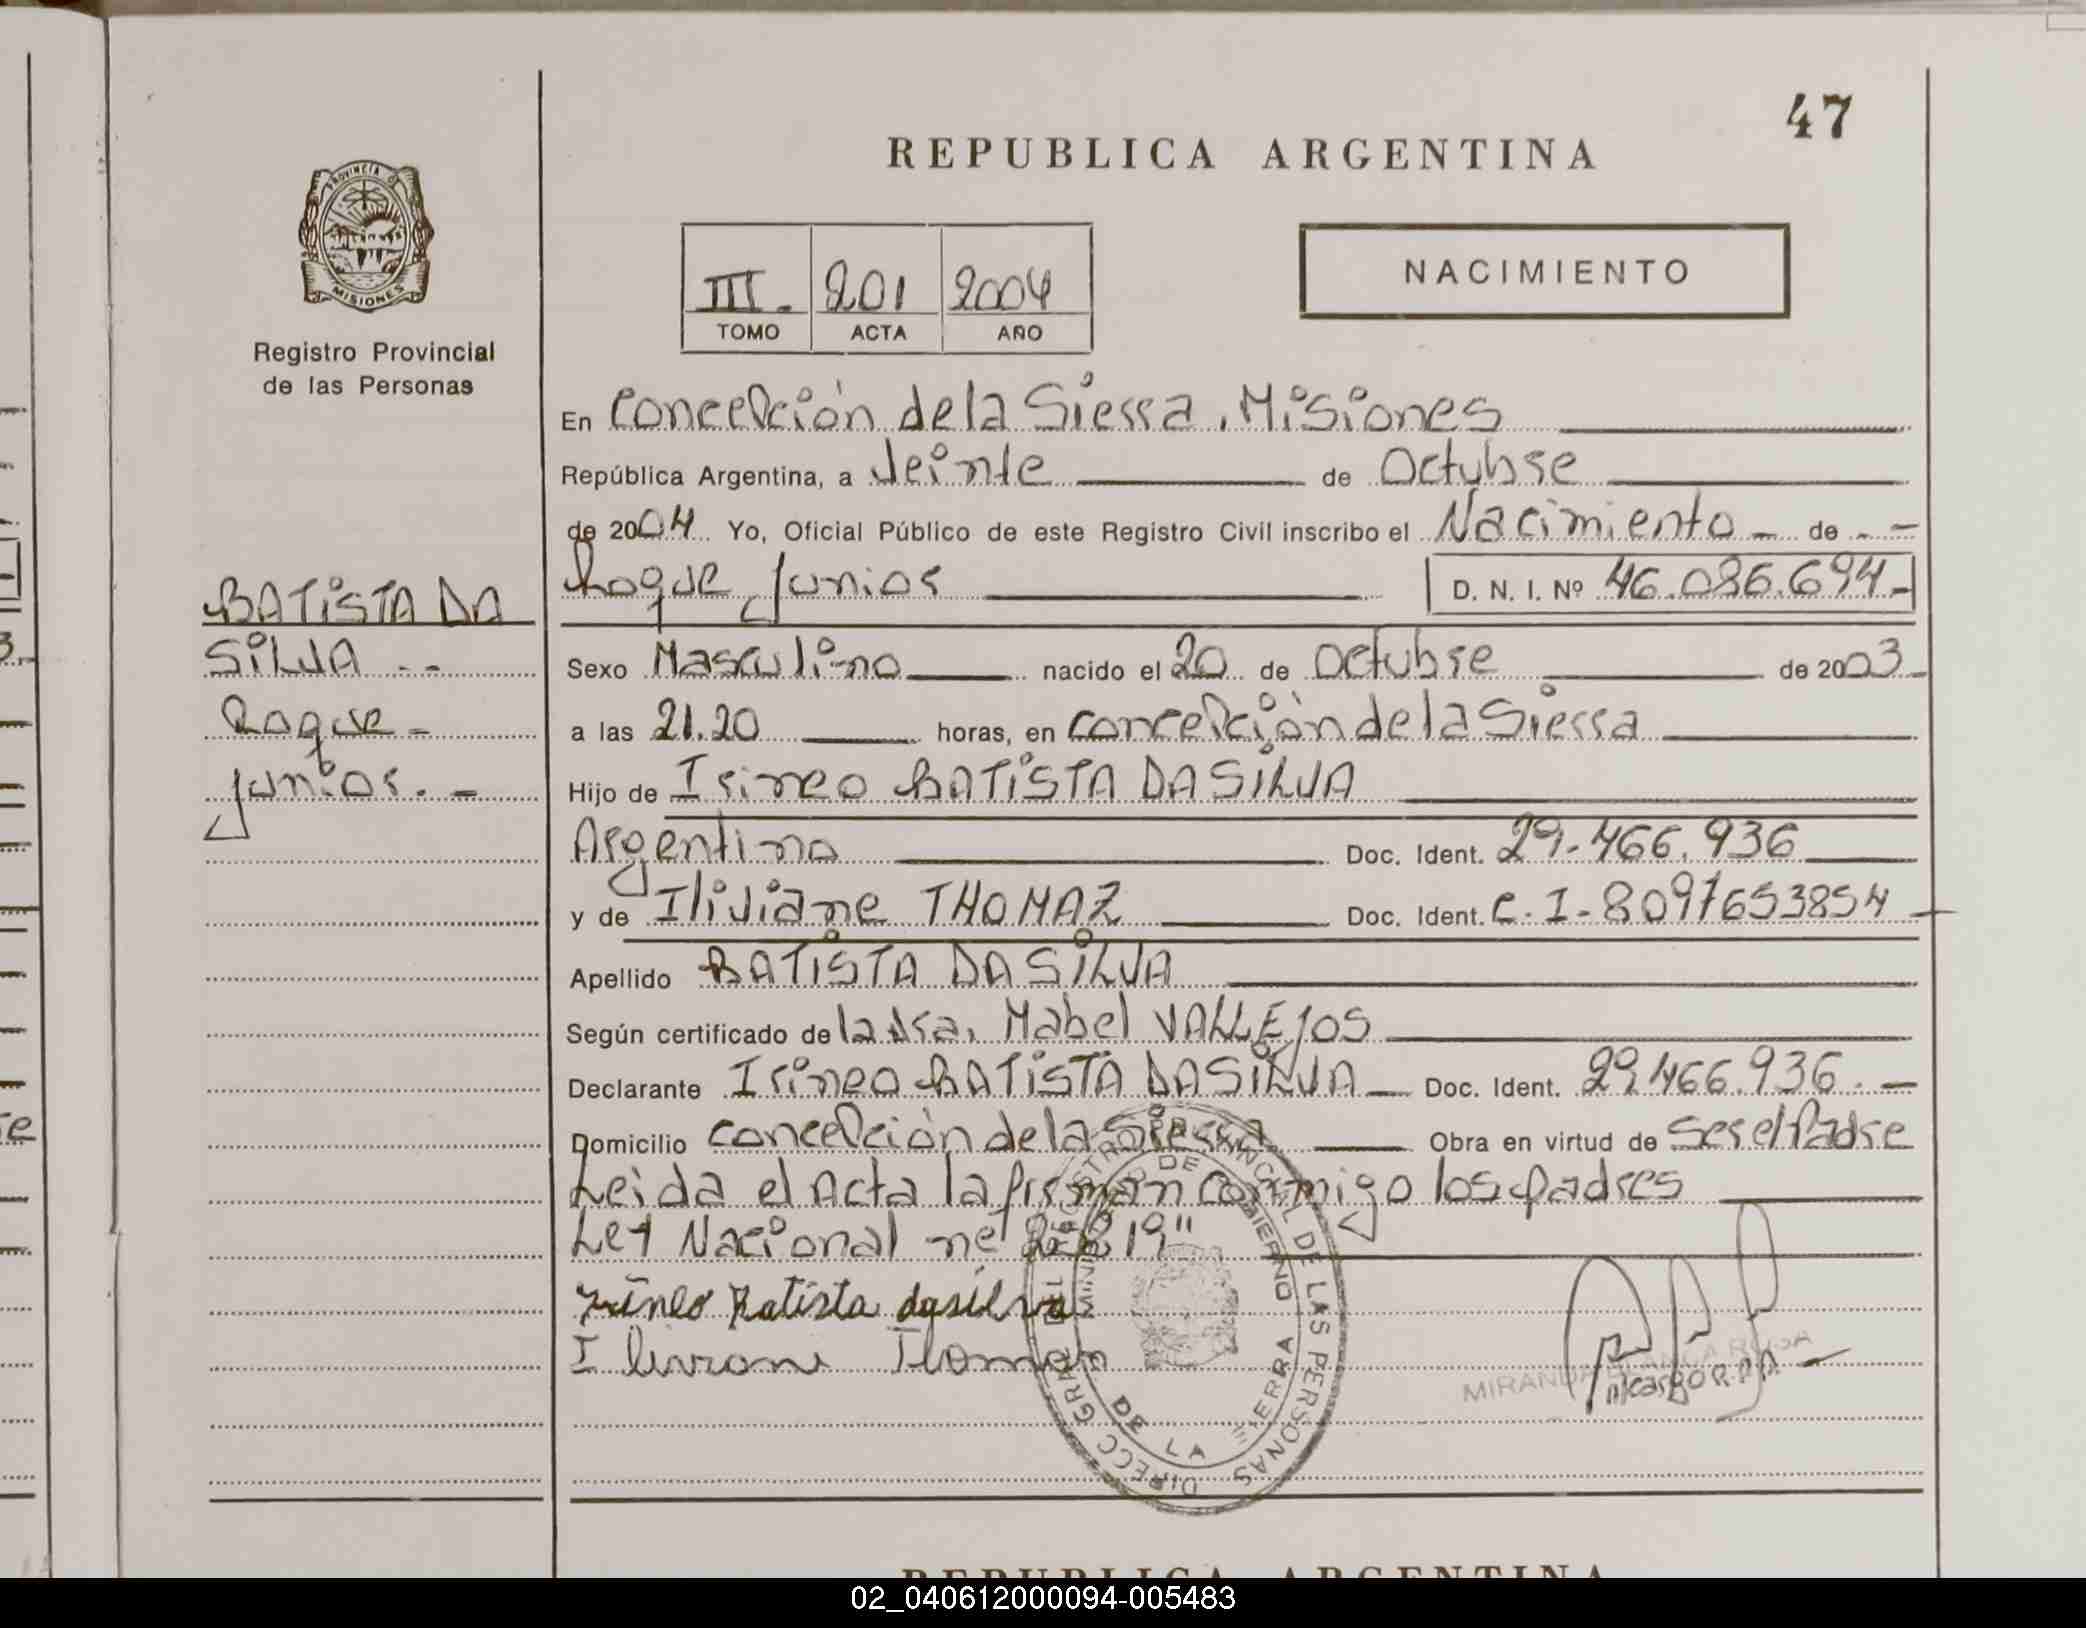 47
REPUBLICA ARGENTINA
PROVINCIA DE
MISIONES
Registro Provincial
de las Personas
III. 201 2004
TOMO ACTA AÑO
NACIMIENTO
En Concepción de la Sierra, Misiones
República Argentina, a Veinte de Octubre
de 2004 Yo, Oficial Público de este Registro Civil inscribo el Nacimiento de
Roque Junior D. N. I. Nº 46.086.694
BATISTA DA
SILVA
Roque
Junior.
Sexo Masculino nacido el 20 de Octubre de 2003
a las 21.20 horas, en Concepción de la Sierra
Hijo de Irineo BATISTA DA SILVA
Argentino Doc. Ident. 29.466.936
y de Iliviane THOMAZ Doc. Ident. C.I-8097653854
Apellido BATISTA DA SILVA
Según certificado de la dra. Mabel VALLEJOS
Declarante Irineo BATISTA DA SILVA Doc. Ident. 29.466.936.
Domicilio Concepción de la Sierra Obra en virtud de Ser el Padre
Leida el Acta la firman conmigo los padres
Ley Nacional nº 25819"
Irineo Batista da silva
Iliviane Thomaz
MIRANDA BLANCA ROSA
A/cargo R.P.P.
DIRECC GRAL DEL REGISTRO PROVINCIAL DE LAS PERSONAS
MINISTERIO DE GOBIERNO
DE LA SIERRA
REPUBLICA ARGENTINA
02_040612000094-005483